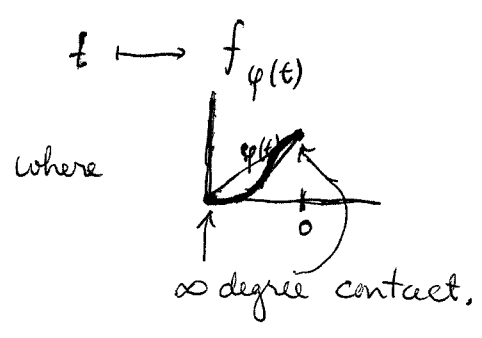 t ⟼ f_φ(t)
where
φ(t)
0
∞ degree contact.